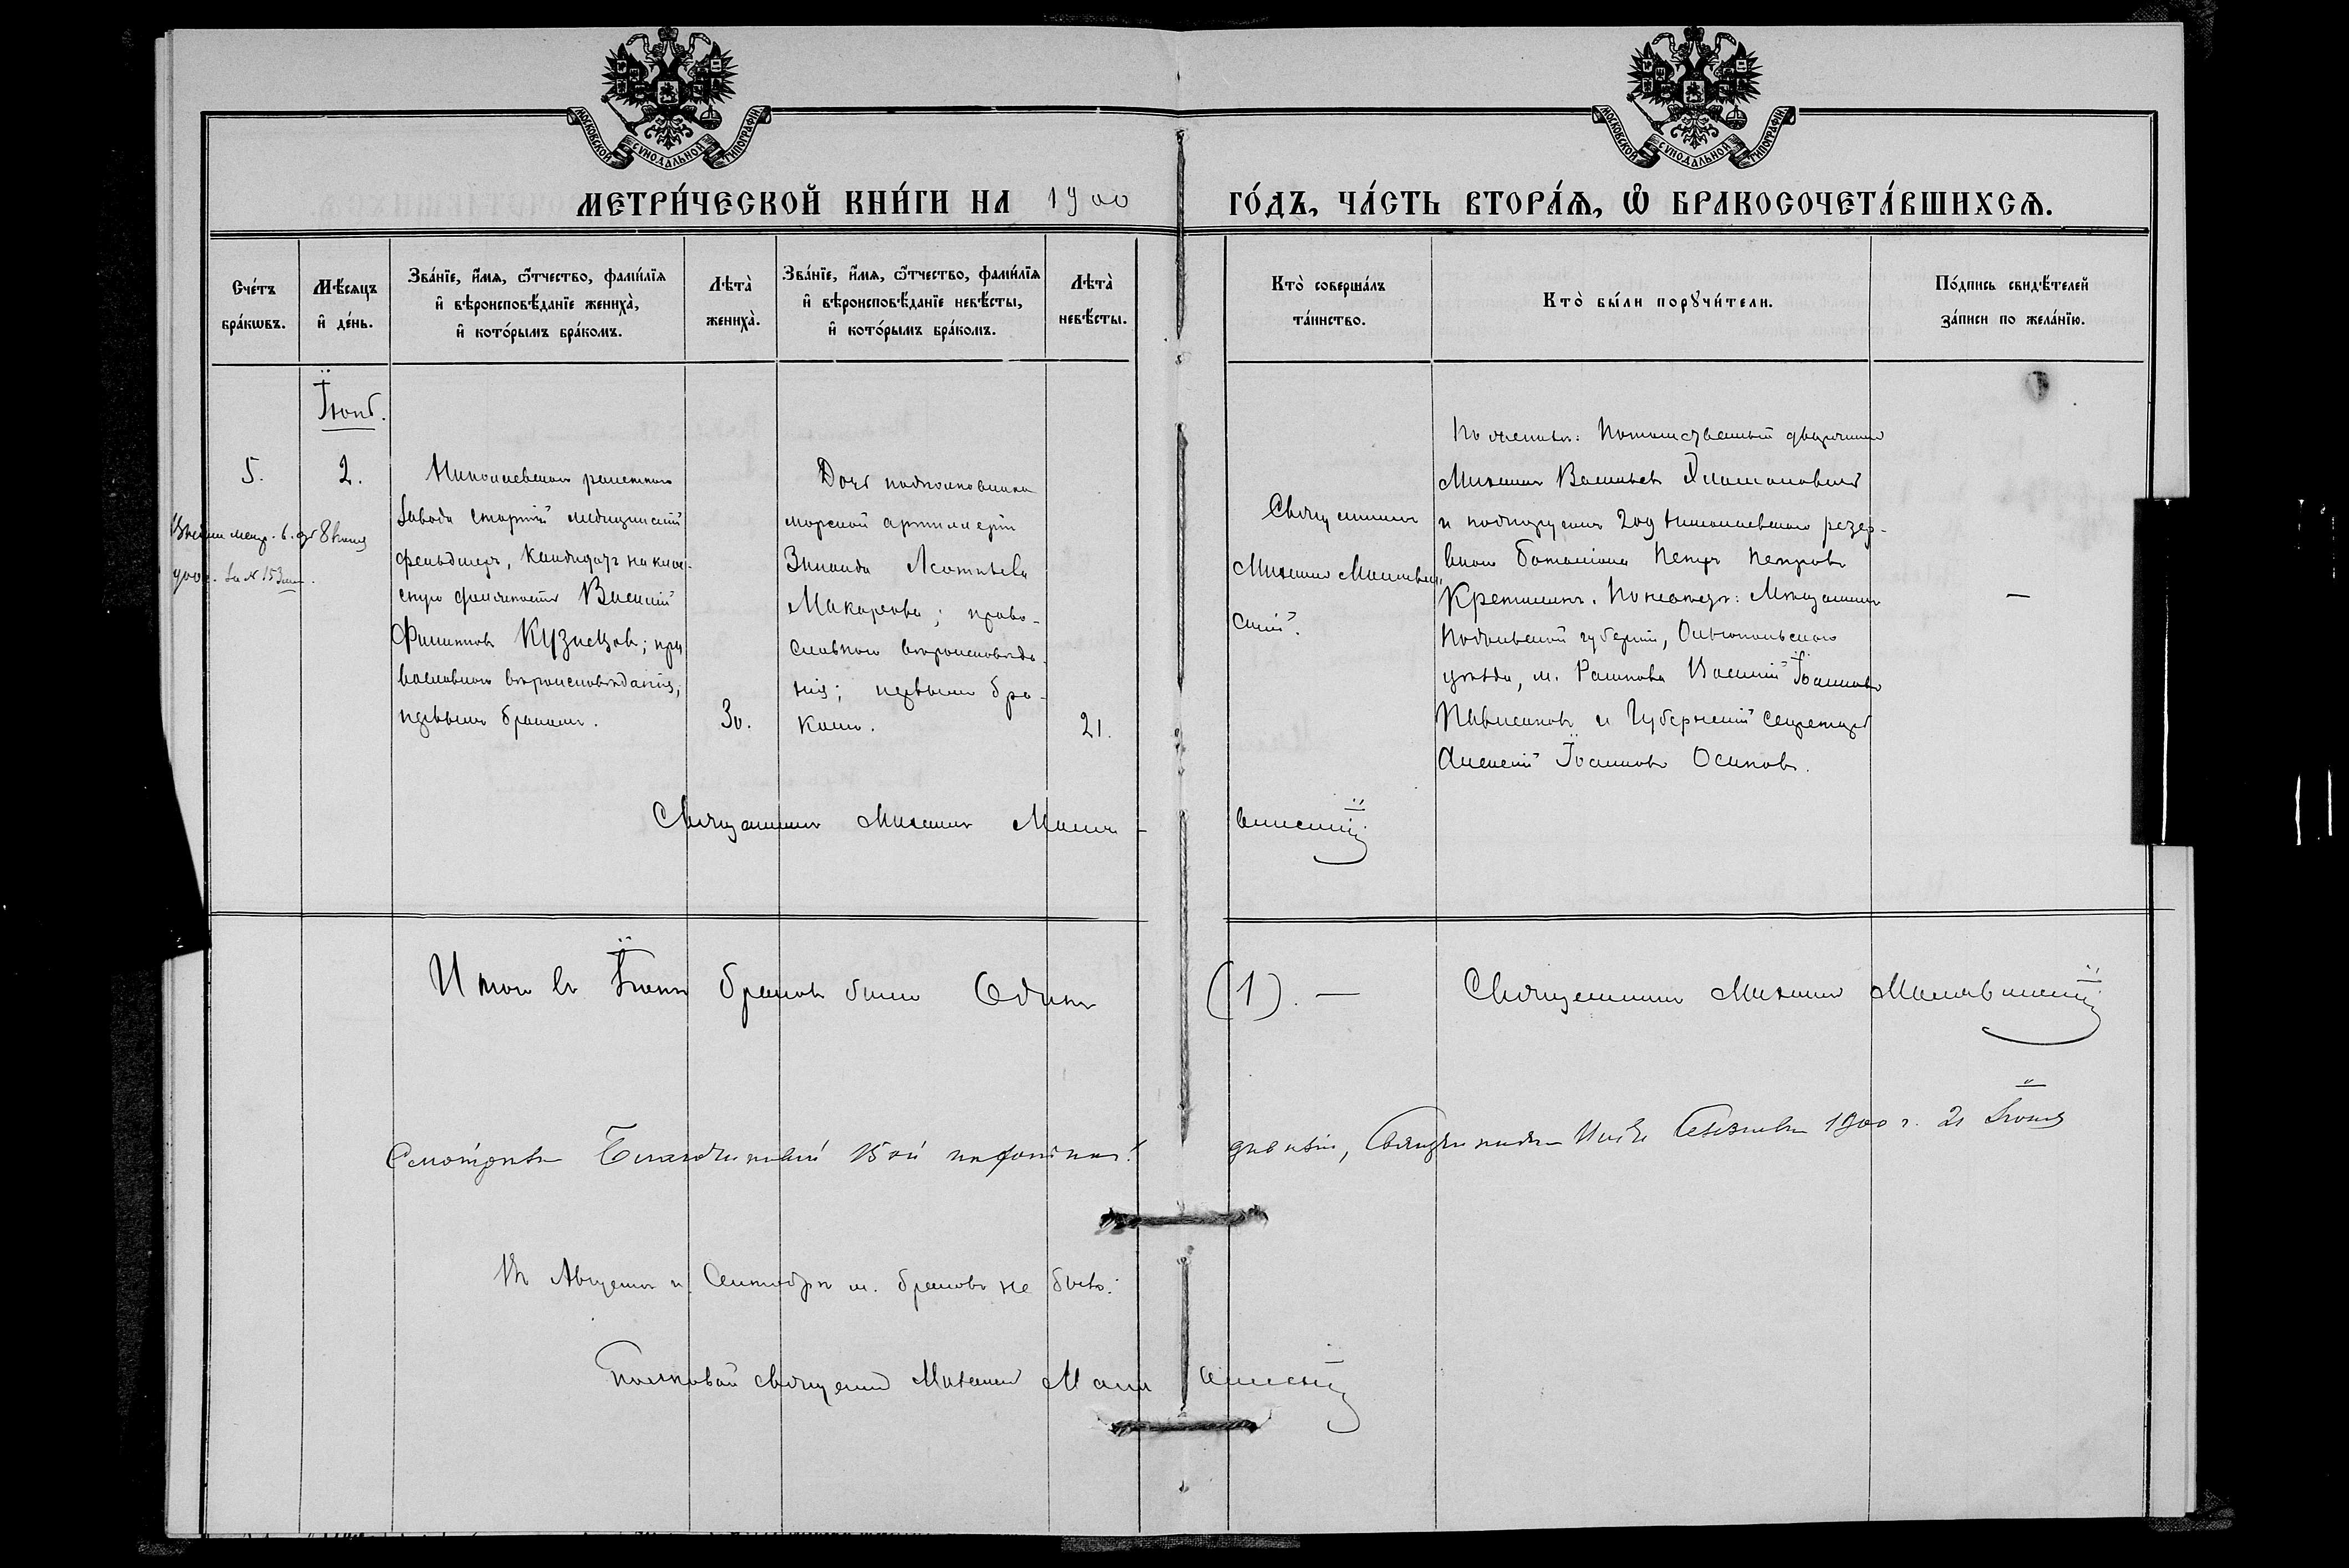 МОСКОВСКОЙ СѴНОДАЛЬНОЙ ТИПОГРАФІИ
МОСКОВСКОЙ СѴНОДАЛЬНОЙ ТИПОГРАФІИ
МЕТРИ́ЧЕСКОЙ КНИ́ГИ НА 1900 ГО́ДЪ, ЧА́СТЬ ВТОРА́Ѧ, Ѽ БРАКОСОЧЕТА́ВШИХСѦ.
Сче́тъ
бра́кѡвъ.
Мѣ́сяцъ
и҆ де́нь.
Зва́нїе, и҆́мѧ, ѻ҆́тчество, фамѝлїѧ
и҆ вѣроисповѣ́данїе жениха̀,
и҆ кото́рымъ бра́комъ.
Лѣта̀
жениха̀.
Зва́нїе, и҆́мѧ, ѻ҆́тчество, фамѝлїѧ
и҆ вѣроисповѣ́данїе невѣ́сты,
и҆ кото́рымъ бра́комъ.
Лѣта̀
невѣ́сты.
Кто̀ соверша́лъ
та́инство.
Кто̀ бы́ли порꙋчи́тели.
По́дпись свидѣ́телей
за́писи по жела́нїю.
Іюнь.
5.
2.
метр. 8 Іюня
за № 153
Николаевскаго ракетнаго
завода старшій медицинскій
фельдшеръ, кандидатъ на клас-
сную должность Василій
Филиповъ Кузнецовъ; пра
вославнаго вѣроисповѣданія;
первымъ бракомъ.
30.
Дочь подполковника
морской артиллеріи
Зинаида Леонтьева
Макарова; право-
славнаго вѣроисповѣда-
нія; первымъ бра-
комъ.
21.
Священникъ
Михаилъ Малявин
скій.
По женихѣ: Потомственный дворянинъ
Михаилъ Васильевъ
и подпоручикъ 209 Николаевскаго резер-
внаго баталіона Петръ Петровъ
Кретининъ. По невѣстѣ: Мѣщанинъ
Подольской губерніи, Ольгопольскаго
уѣзда, м. Рашкова Василій Іоанновъ
и Губернскій Секретарь
Алексѣй Іоанновъ Осиповъ.
—
Священникъ Михаилъ Маляվинскій
Итого въ Іюнѣ браковъ было Одинъ (1). — Священникъ Михаилъ Малявинскій
Смотрѣлъ Благочинный 15-ой пѣхотной дивизіи, Священникъ 1900 г. 21 Іюня
Въ Августѣ и Сентябрѣ м. браковъ не было.
Полковой священникъ Михаилъ Малявинскій